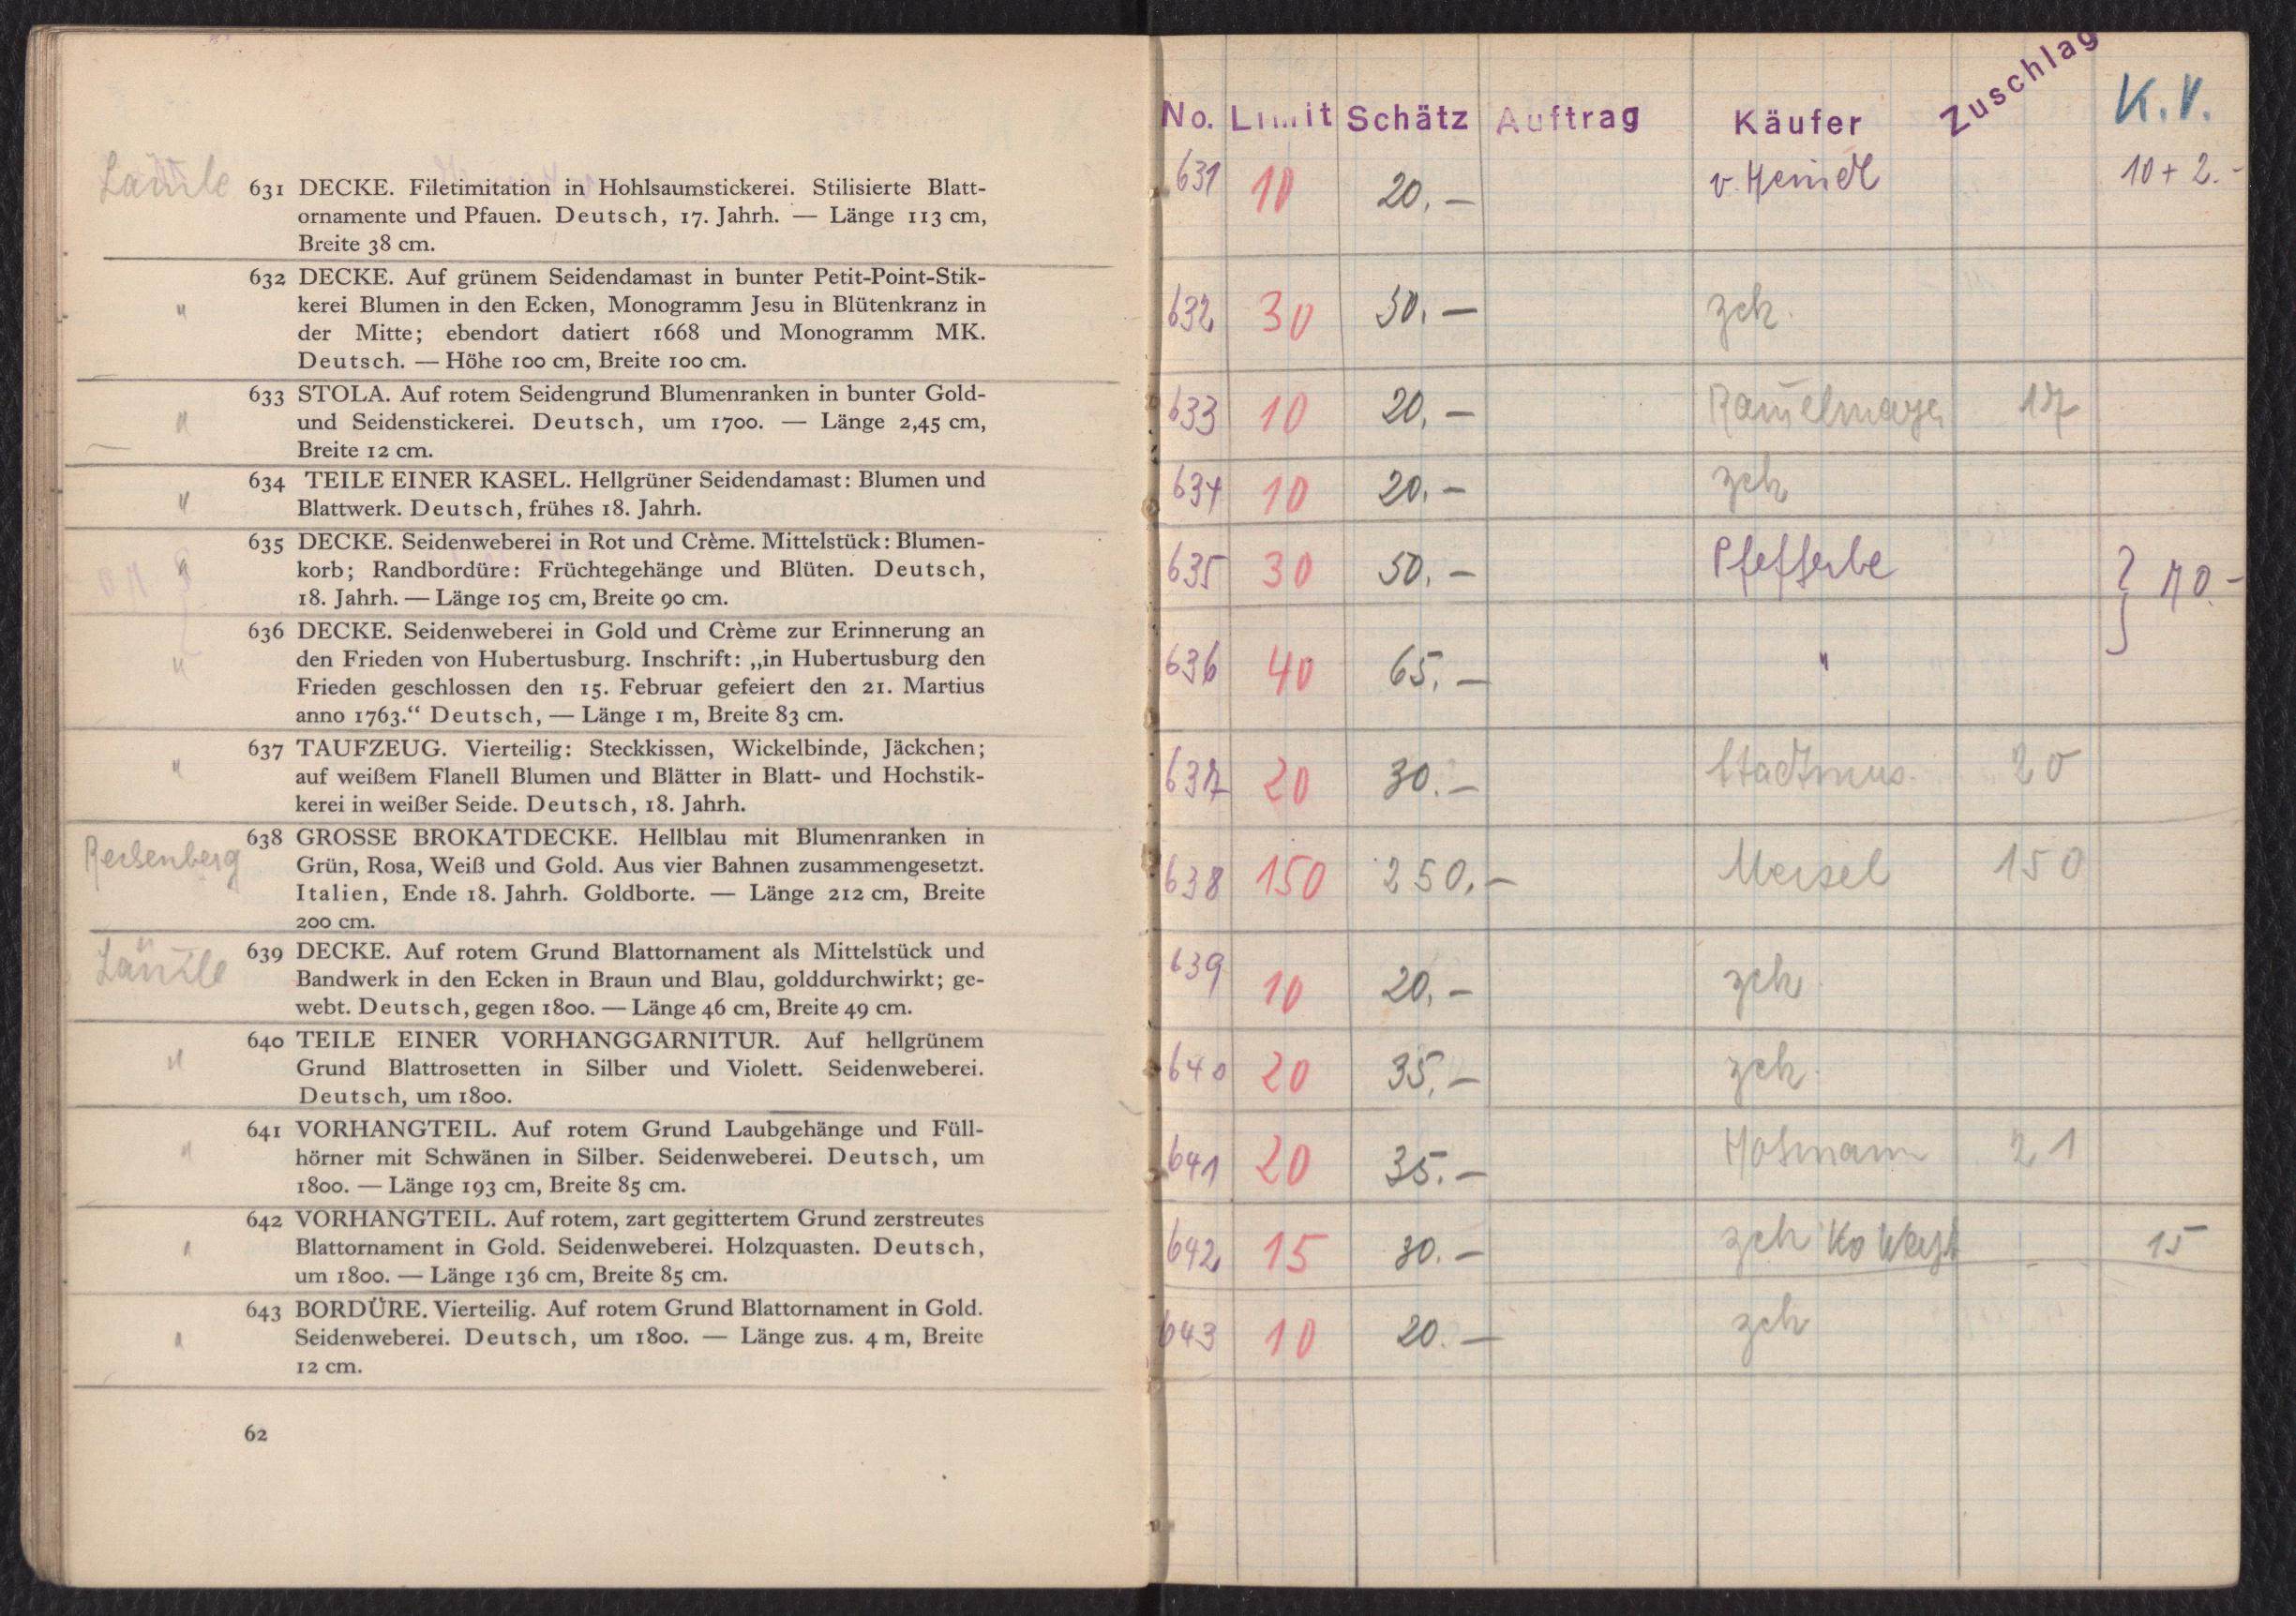 631 DECKE. Filetimitation in Hohlsaumstickerei. Stilisierte Blatt-
ornamente und Pfauen. Deutsch, 17. Jahrh. — Länge 113 cm,
Breite 38 cm.
632 DECKE. Auf grünem Seidendamast in bunter Petit-Point-Stik-
" kerei Blumen in den Ecken, Monogramm Jesu in Blütenkranz in
der Mitte; ebendort datiert 1668 und Monogramm MK.
Deutsch. — Höhe 100 cm, Breite 100 cm.
633 STOLA. Auf rotem Seidengrund Blumenranken in bunter Gold-
" und Seidenstickerei. Deutsch, um 1700. — Länge 2,45 cm,
Breite 12 cm.
634 TEILE EINER KASEL. Hellgrüner Seidendamast: Blumen und
" Blattwerk. Deutsch, frühes 18. Jahrh.
635 DECKE. Seidenweberei in Rot und Crème. Mittelstück: Blumen-
" korb; Randbordüre: Früchtegehänge und Blüten. Deutsch,
18. Jahrh. — Länge 105 cm, Breite 90 cm.
636 DECKE. Seidenweberei in Gold und Crème zur Erinnerung an
" den Frieden von Hubertusburg. Inschrift: „in Hubertusburg den
Frieden geschlossen den 15. Februar gefeiert den 21. Martius
anno 1763.“ Deutsch, — Länge 1 m, Breite 83 cm.
637 TAUFZEUG. Vierteilig: Steckkissen, Wickelbinde, Jäckchen;
" auf weißem Flanell Blumen und Blätter in Blatt- und Hochstik-
kerei in weißer Seide. Deutsch, 18. Jahrh.
638 GROSSE BROKATDECKE. Hellblau mit Blumenranken in
Grün, Rosa, Weiß und Gold. Aus vier Bahnen zusammengesetzt.
Italien, Ende 18. Jahrh. Goldborte. — Länge 212 cm, Breite
200 cm.
639 DECKE. Auf rotem Grund Blattornament als Mittelstück und
Bandwerk in den Ecken in Braun und Blau, golddurchwirkt; ge-
webt. Deutsch, gegen 1800. — Länge 46 cm, Breite 49 cm.
640 TEILE EINER VORHANGGARNITUR. Auf hellgrünem
" Grund Blattrosetten in Silber und Violett. Seidenweberei.
Deutsch, um 1800.
641 VORHANGTEIL. Auf rotem Grund Laubgehänge und Füll-
" hörner mit Schwänen in Silber. Seidenweberei. Deutsch, um
1800. — Länge 193 cm, Breite 85 cm.
642 VORHANGTEIL. Auf rotem, zart gegittertem Grund zerstreutes
" Blattornament in Gold. Seidenweberei. Holzquasten. Deutsch,
um 1800. — Länge 136 cm, Breite 85 cm.
643 BORDÜRE. Vierteilig. Auf rotem Grund Blattornament in Gold.
" Seidenweberei. Deutsch, um 1800. — Länge zus. 4 m, Breite
12 cm.
62
No. Limit Schätz Auftrag Käufer Zuschlag K.V.
631 10 20.— 10 + 2.-
632 30 50.— zch.
633 10 20.— 17
634 10 20.— zch
635 30 50.— } 70.-
636 40 65.— "
637 20 30.— Stadtmus. 20
638 150 250.— Meisel 150
639 10 20.— zch
640 20 35.— zch.
641 20 35.— Hofmann 21
642 15 30.— zch 15
643 10 20.— zch